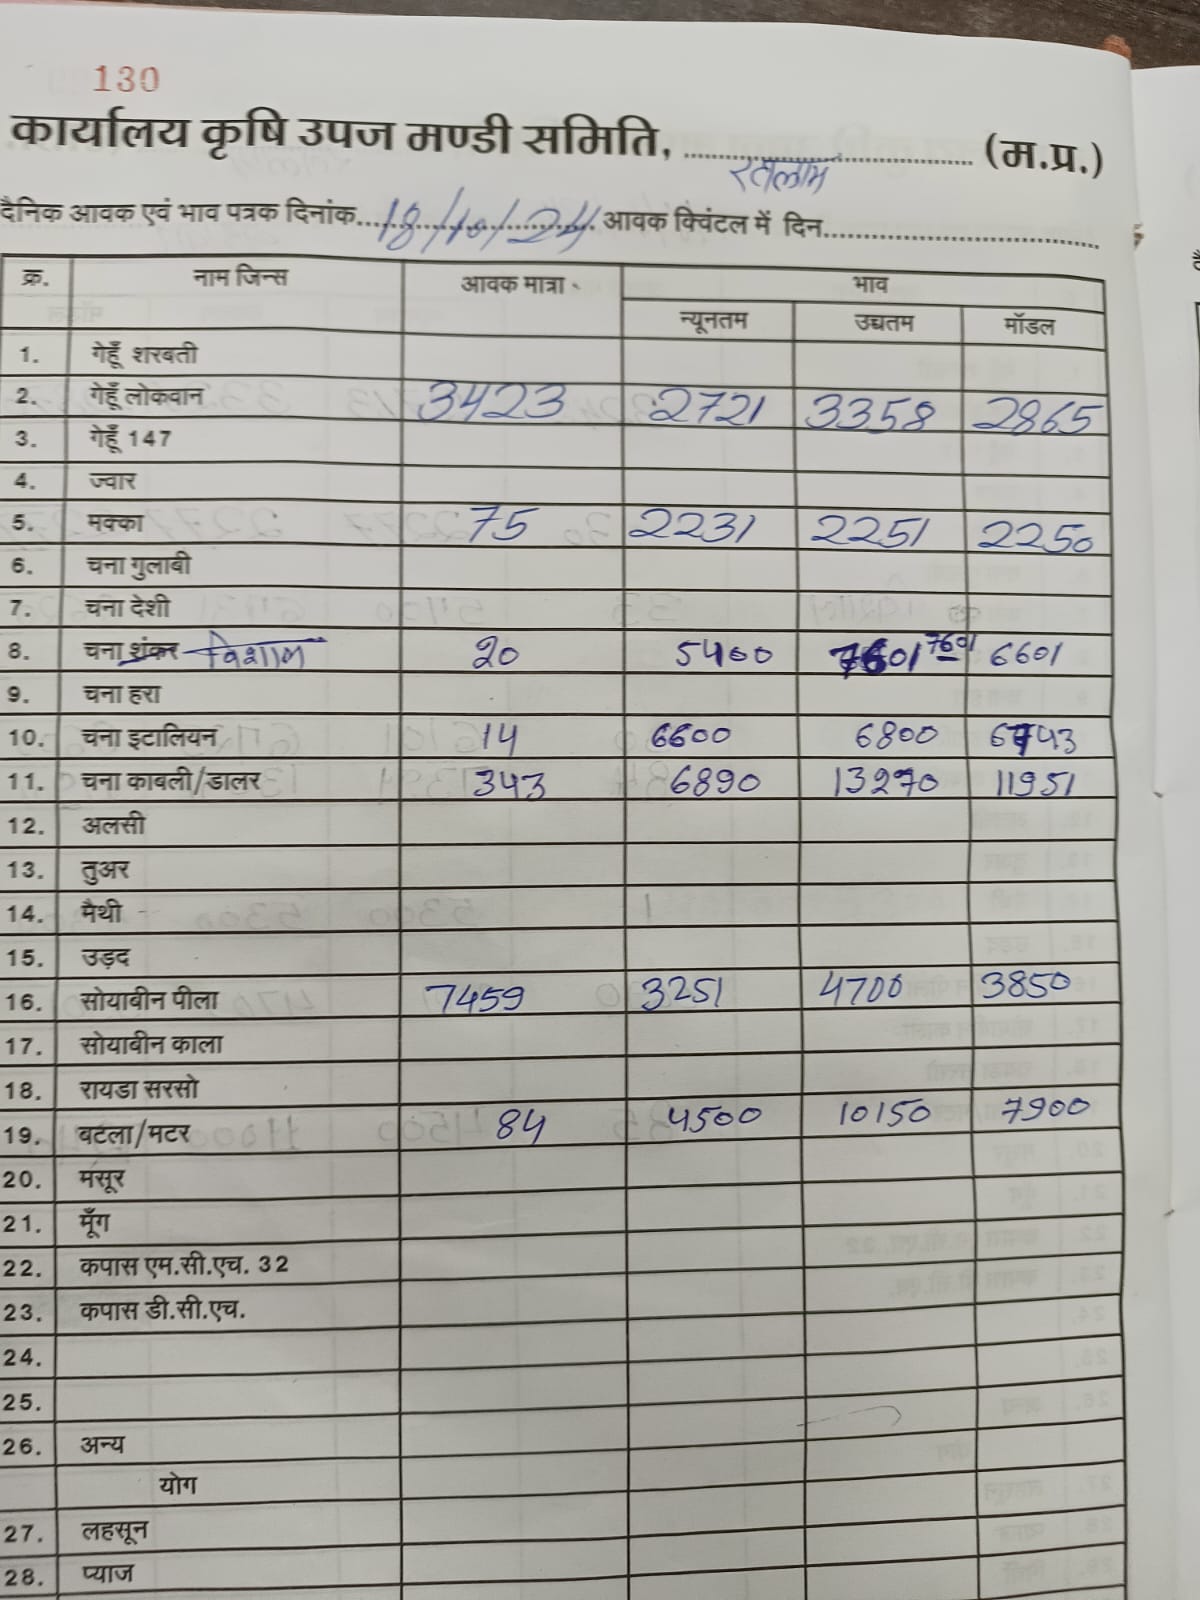 130
कार्यालय कृषि उपज मण्डी समिति, रतलाम (म.प्र.)
दैनिक आवक एवं भाव पत्रक दिनांक 18/10/24 आवक क्विंटल में दिन
क्र. नाम जिन्स आवक मात्रा भाव
न्यूनतम उच्चतम मॉडल
1. गेहूँ शरबती
2. गेहूँ लोकवान 3423 2721 3358 2865
3. गेहूँ 147
4. ज्वार
5. मक्का 75 2231 2251 2250
6. चना गुलाबी
7. चना देशी
8. चना शंकर विशाल 20 5400 7601 7601 6601
9. चना हरा
10. चना इटालियन 14 6600 6800 6743
11. चना काबली/डालर 343 6890 13270 11951
12. अलसी
13. तुअर
14. मैथी
15. उड़द
16. सोयाबीन पीला 7459 3251 4700 3850
17. सोयाबीन काला
18. रायडा सरसो
19. बटला/मटर 84 4500 10150 7900
20. मसूर
21. मूँग
22. कपास एम.सी.एच. 32
23. कपास डी.सी.एच.
24.
25.
26. अन्य
योग
27. लहसून
28. प्याज